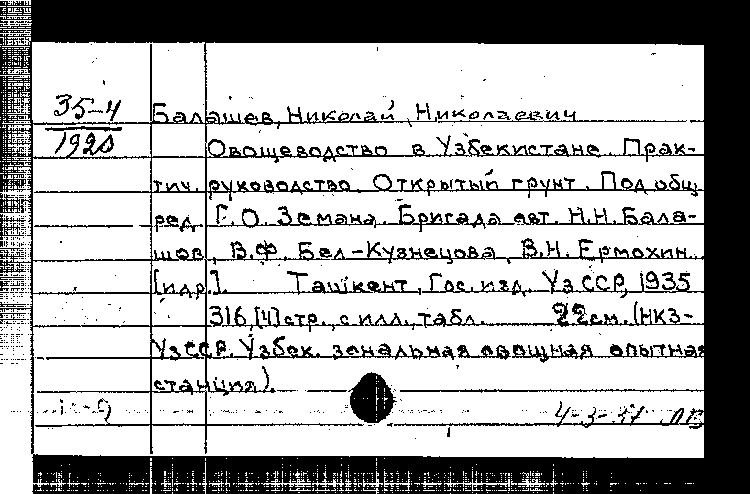 35-4
1920
Балашев, Николай Николаевич
Овощеводство в Узбекистане. Прак-
тич. руководство. Открытый грунт. Под общ.
ред. Г. О. Земана. Бригада авт. Н.Н. Бала-
шов, В.Ф. Бел-Кузнецова, В.Н. Ермохин
[и др.]. Ташкент, Гос. изд. УзССР, 1935
316, [4] стр., с илл., табл. 22 см. (НКЗ-
УзССР. Узбек. зональная овощная опытная
станция).
4-3-37